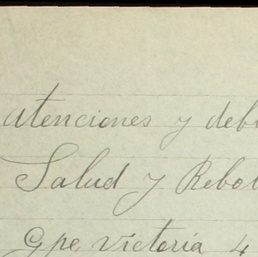 atenciones y deb
Salud y Rebol
Gpe, Victoria 4